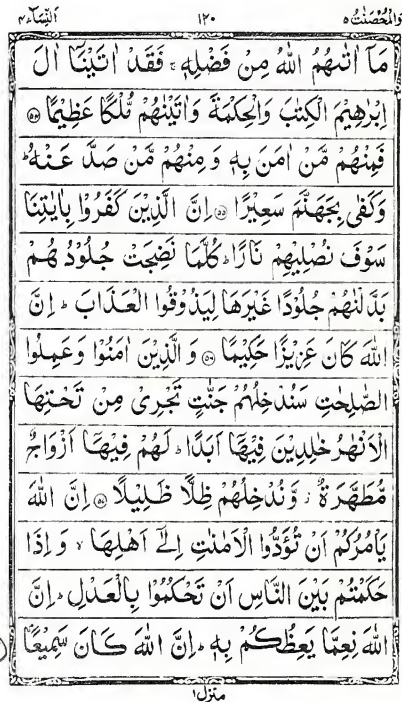 والمحصنت ٥ ١٢٠ النسآء ٤
مَاۤ اٰتٰىهُمُ اللّٰهُ مِنْ فَضْلِهٖ ۚ فَقَدْ اٰتَيْنَاۤ اٰلَ
اِبْرٰهِيْمَ الْكِتٰبَ وَالْحِكْمَةَ وَاٰتَيْنٰهُمْ مُّلْكًا عَظِيْمًا ۝٥٤
فَمِنْهُمْ مَّنْ اٰمَنَ بِهٖ وَمِنْهُمْ مَّنْ صَدَّ عَنْهُ ؕ
وَكَفٰى بِجَهَنَّمَ سَعِيْرًا ۝٥٥ اِنَّ الَّذِيْنَ كَفَرُوْا بِاٰيٰتِنَا
سَوْفَ نُصْلِيْهِمْ نَارًا ؕ كُلَّمَا نَضِجَتْ جُلُوْدُهُمْ
بَدَّلْنٰهُمْ جُلُوْدًا غَيْرَهَا لِيَذُوْقُوا الْعَذَابَ ؕ اِنَّ
اللّٰهَ كَانَ عَزِيْزًا حَكِيْمًا ۝٥٦ وَالَّذِيْنَ اٰمَنُوْا وَعَمِلُوا
الصّٰلِحٰتِ سَنُدْخِلُهُمْ جَنّٰتٍ تَجْرِيْ مِنْ تَحْتِهَا
الْاَنْهٰرُ خٰلِدِيْنَ فِيْهَاۤ اَبَدًا ؕ لَهُمْ فِيْهَاۤ اَزْوَاجٌ
مُّطَهَّرَةٌ ؗ وَّنُدْخِلُهُمْ ظِلًّا ظَلِيْلًا ۝٥٧ اِنَّ اللّٰهَ
يَاْمُرُكُمْ اَنْ تُؤَدُّوا الْاَمٰنٰتِ اِلٰۤى اَهْلِهَا ۙ وَاِذَا
حَكَمْتُمْ بَيْنَ النَّاسِ اَنْ تَحْكُمُوْا بِالْعَدْلِ ؕ اِنَّ
اللّٰهَ نِعِمَّا يَعِظُكُمْ بِهٖ ؕ اِنَّ اللّٰهَ كَانَ سَمِيْعًاۢ
منزل ١